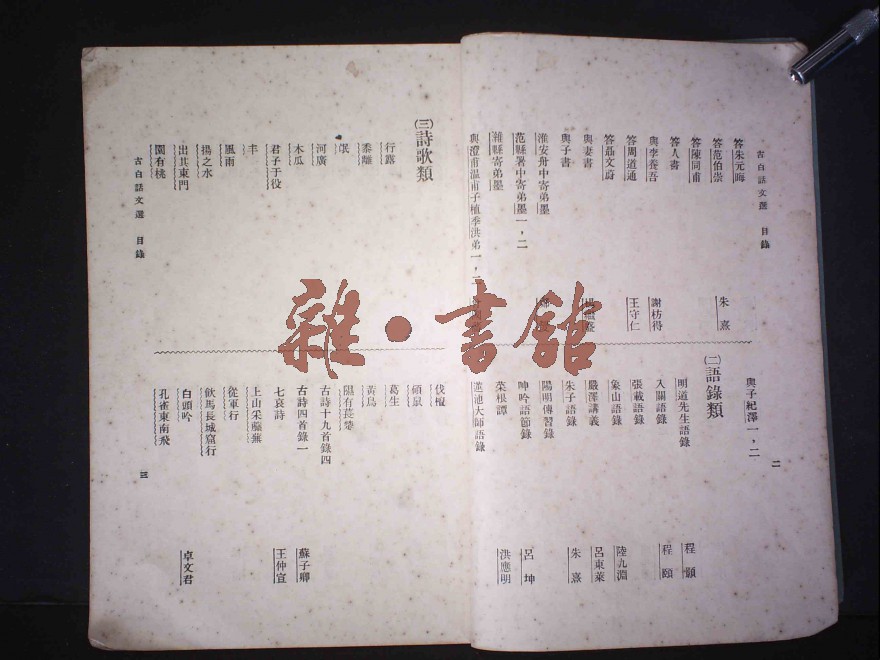 古白話文選 目錄
二
答朱元晦
答范伯崇 朱熹
答陳同甫
答人書
與李養吾 謝枋得
答周道通 王守仁
答聶文蔚
與妻書
與子書
淮安舟中寄弟墨
范縣署中寄弟墨一，二
濰縣寄弟墨
與澄甫溫甫子植季洪弟一，二
與子紀澤一，二
㈡語錄類
明道先生語錄 程顥
入關語錄 程頤
張載語錄
象山語錄 陸九淵
麗澤講義 呂東萊
朱子語錄 朱熹
陽明傳習錄
呻吟語節錄 呂坤
菜根譚 洪應明
蓮池大師語錄
㈢詩歌類
行露
黍離
氓
河廣
木瓜
君子于役
丰
風雨
揚之水
出其東門
園有桃
古白話文選 目錄
三
伐檀
碩鼠
葛生
黃鳥
隰有萇楚
古詩十九首錄四
古詩四首錄一 蘇子卿
七哀詩 王仲宣
上山采蘼蕪
從軍行
飲馬長城窟行
白頭吟 卓文君
孔雀東南飛
雜·書館